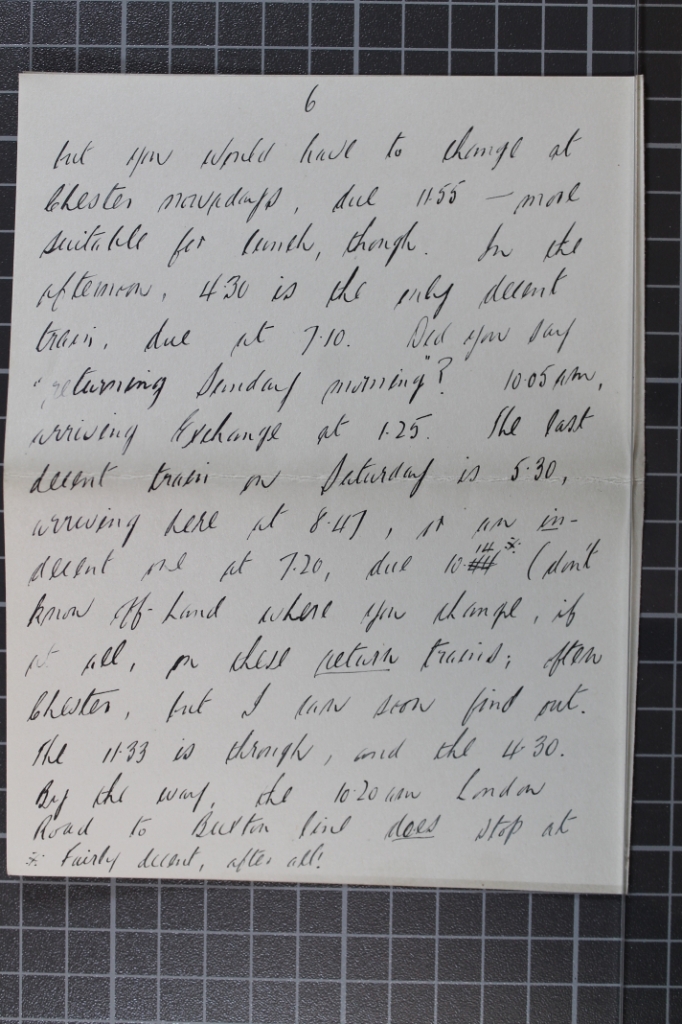 6
but you would have to change at
Chester nowadays, due 11.55 — more
suitable for lunch, though. In the
afternoon, 4.30 is the only decent
train, due at 7.10. Did you say
"returning Sunday morning"? 10.05 am,
arriving Exchange at 1.25. The last
decent train on Saturday is 5.30,
arriving here at 8.47, or an in-
decent one at 7.20, due 10.14 * (don't
know off-hand where you change, if
at all, on these return trains; often
Chester, but I can soon find out.
The 11.33 is through, and the 4.30.
By the way, the 10.20 am London
Road to Buxton line does stop at
* Fairly decent, after all!